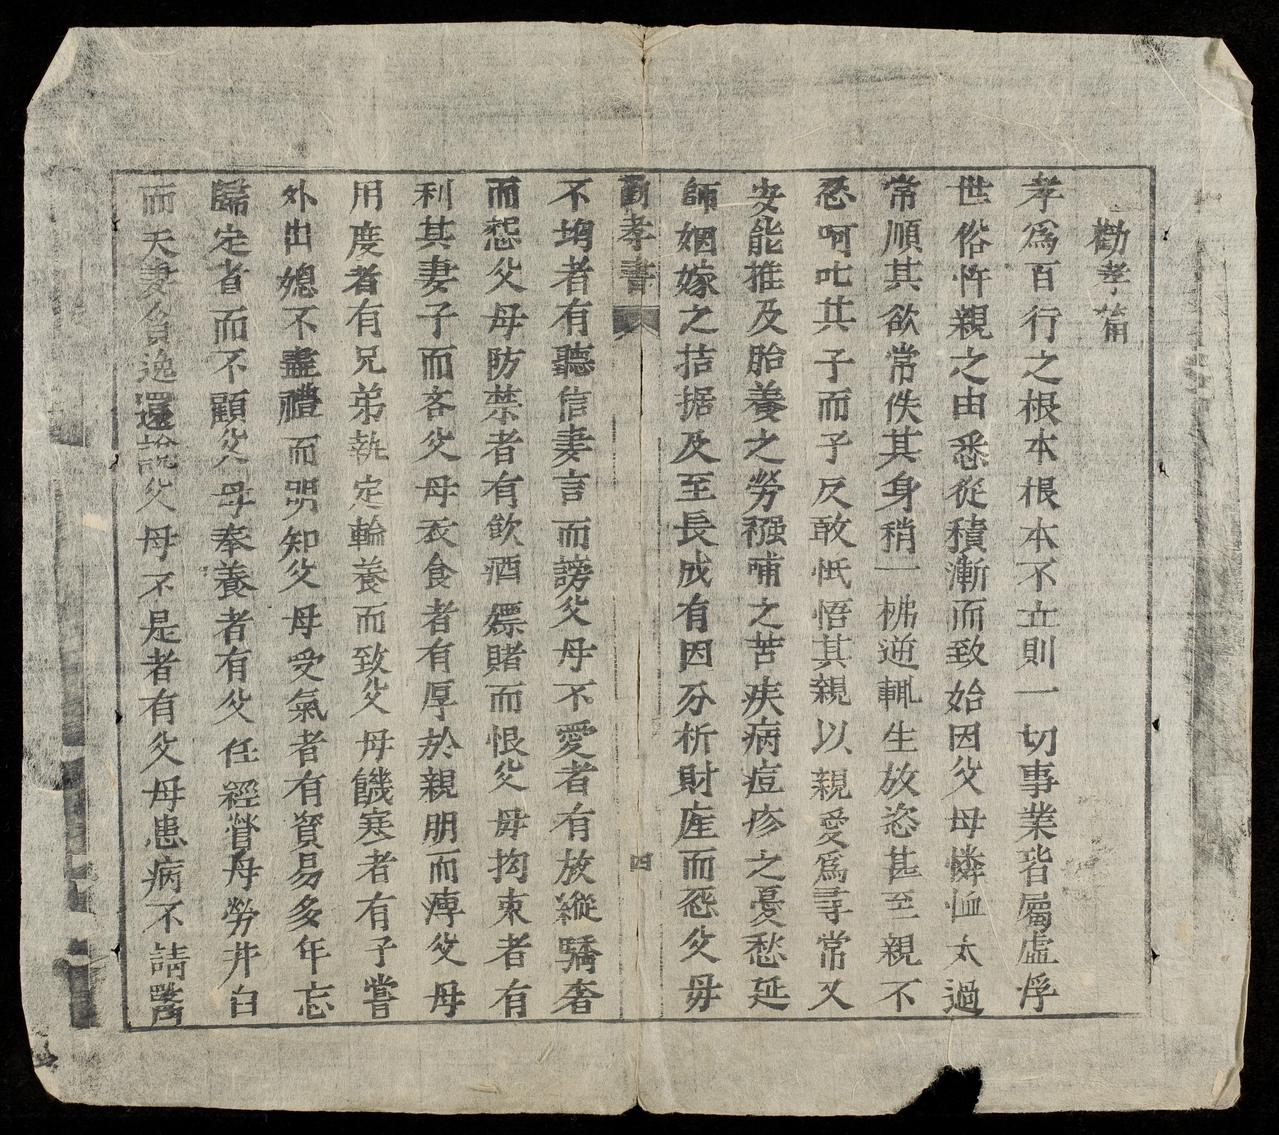 勸孝篇
孝爲百行之根本根本不立則一切事業皆屬虛俘
世俗忤親之由悉從積漸而致始因父母憐恤太過
常順其欲常佚其身稍一拂逆輒生放恣甚至親不
忍呵叱其子而子反敢怃悟其親以親愛爲尋常又
安能推及胎養之勞襁哺之苦疾病痘疹之憂愁延
師姻嫁之拮据及至長成有因分析財産而怨父毋
勸孝書
四
不均者有聽信妻言而謗父母不愛者有放縱驕奢
而怨父母防禁者有飲酒嫖賭而恨父毋拘束者有
利其妻子而吝父母衣食者有厚於親朋而溥父母
用度者有兄弟執定輪養而致父母饑寒者有子嘗
外出媳不盡禮而明知父母受氣者有貿易多年忘
歸定省而不顧父母奉養者有父任經營母勞井臼
而夫妻貪逸還說父母不是者有父母患病不請醫